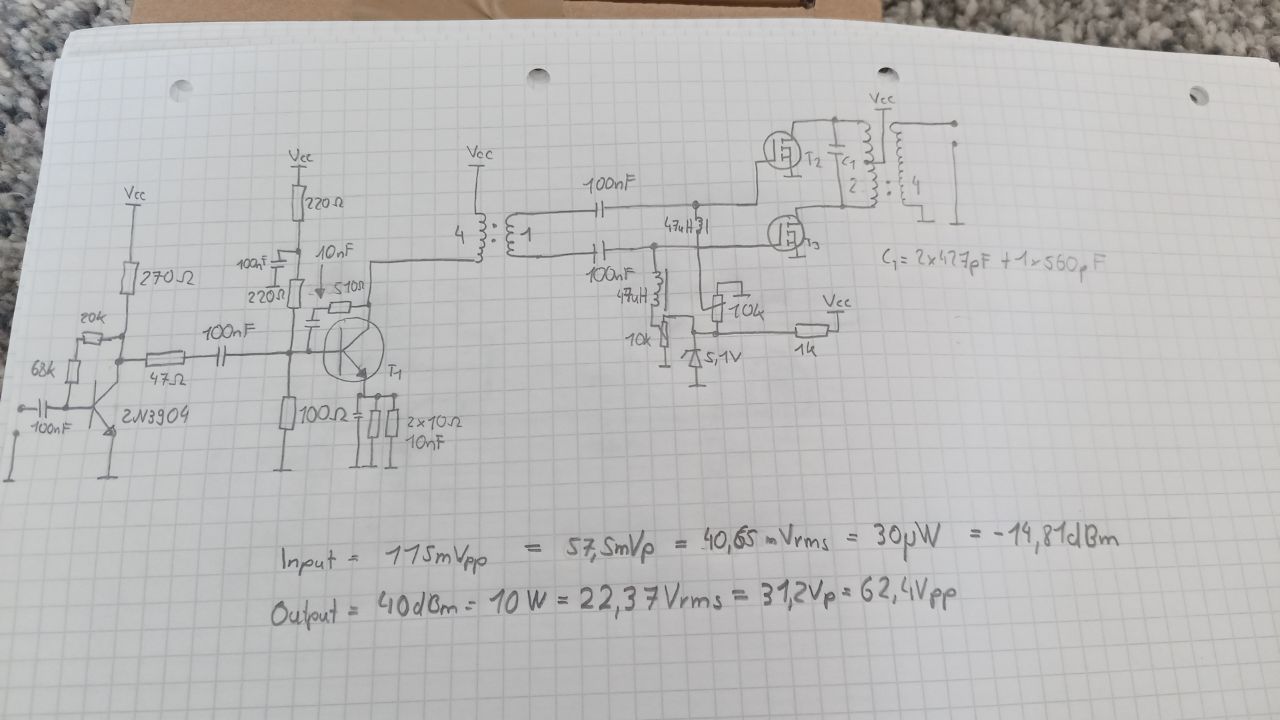 Vcc
Vcc
Vcc
Vcc
220Ω
100nF
T2
C1
2 : 4
4 : 1
47uH
T3
270Ω
100nF
10nF
220Ω
510Ω
100nF
47uH
C1 = 2x427pF + 1x560pF
20k
100nF
10k
Vcc
68k
47Ω
T1
10k
5,1V
1k
100nF
2N3904
100Ω
2x10Ω
10nF
Input = 115mVpp = 57,5mVp = 40,65mVrms = 30µW = -14,81dBm
Output = 40dBm = 10W = 22,37Vrms = 31,2Vp = 62,4Vpp